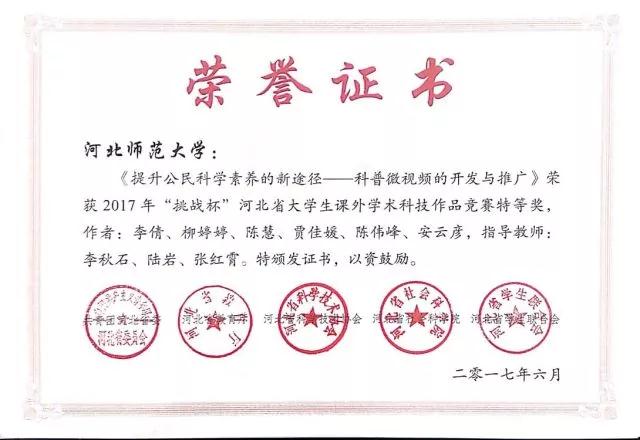 荣誉证书
河北师范大学：
《提升公民科学素养的新途径——科普微视频的开发与推广》荣
获2017年“挑战杯”河北省大学生课外学术科技作品竞赛特等奖，
作者：李倩、柳婷婷、陈慧、贾佳媛、陈伟峰、安云彦，指导教师：
李秋石、陆岩、张红霄。特颁发证书，以资鼓励。
共青团河北省委 河北省教育厅 河北省科学技术协会 河北省社会科学院 河北省学生联合会
河北省委员会
河北省科学技术协会
河北省社会科学院
二零一七年六月